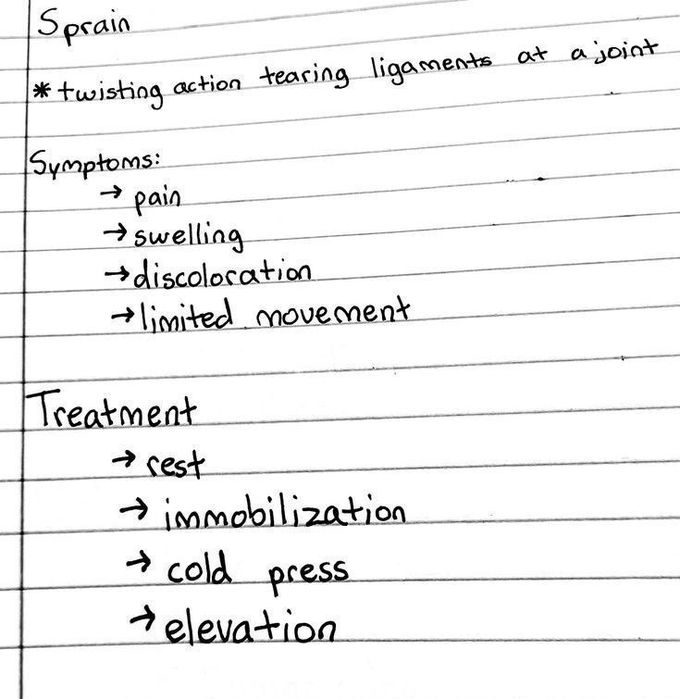 Sprain
* twisting action tearing ligaments at a joint
Symptoms:
→ pain
→ swelling
→ discoloration
→ limited movement
Treatment
→ rest
→ immobilization
→ cold press
→ elevation